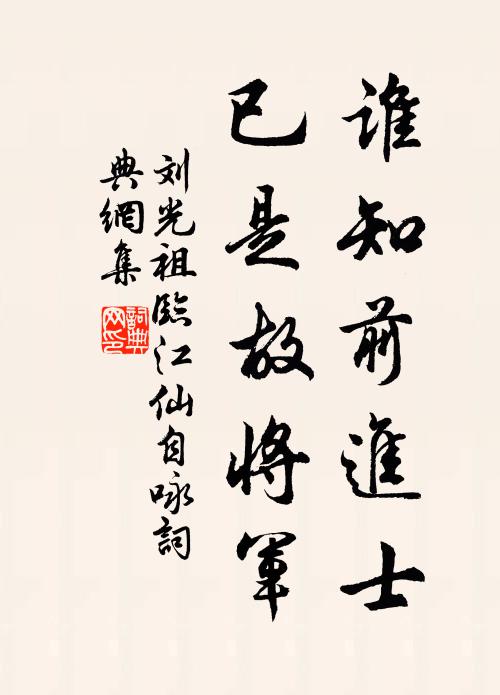 誰知前進士
已是故將軍
刘光祖臨江仙自咏詞
典網集
詞典网印